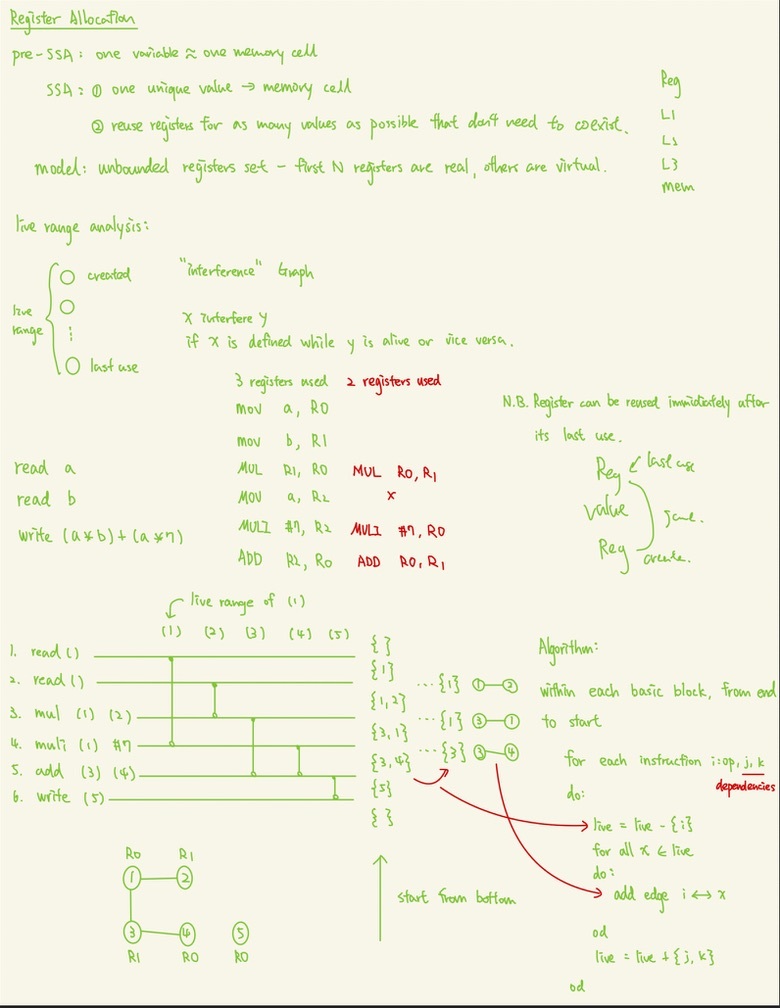 Register Allocation
pre-SSA: one variable ≈ one memory cell
SSA: ① one unique value → memory cell
② reuse registers for as many values as possible that don't need to coexist.
model: unbounded registers set - first N registers are real, others are virtual.
Reg
L1
L2
L3
mem
live range analysis:
live range
created
last use
"interference" Graph
X interfere Y
if X is defined while y is alive or vice versa.
3 registers used 2 registers used
mov a, R0
mov b, R1
MUL R1, R0 MUL R0, R1
MOV a, R2 x
MULI #7, R2 MULI #7, R0
ADD R2, R0 ADD R0, R1
read a
read b
write (a*b)+(a*7)
N.B. Register can be reused immediately after
its last use.
Reg ← last use
value
Reg
same.
create.
live range of (1)
(1) (2) (3) (4) (5)
1. read ()
2. read ()
3. mul (1) (2)
4. muli (1) #7
5. add (3) (4)
6. write (5)
{ }
{1}
{1,2}
{3,1}
{3,4}
{5}
{ }
...{1} ①—②
...{1} ③—①
...{3} ③—④
Algorithm:
within each basic block, from end
to start
for each instruction i:op, j, k
dependencies
do:
live = live - {i}
for all x ∈ live
do:
add edge i ↔ x
od
live = live + {j, k}
od
start from bottom
R0 R1
① ②
③ ④ ⑤
R1 R0 R0